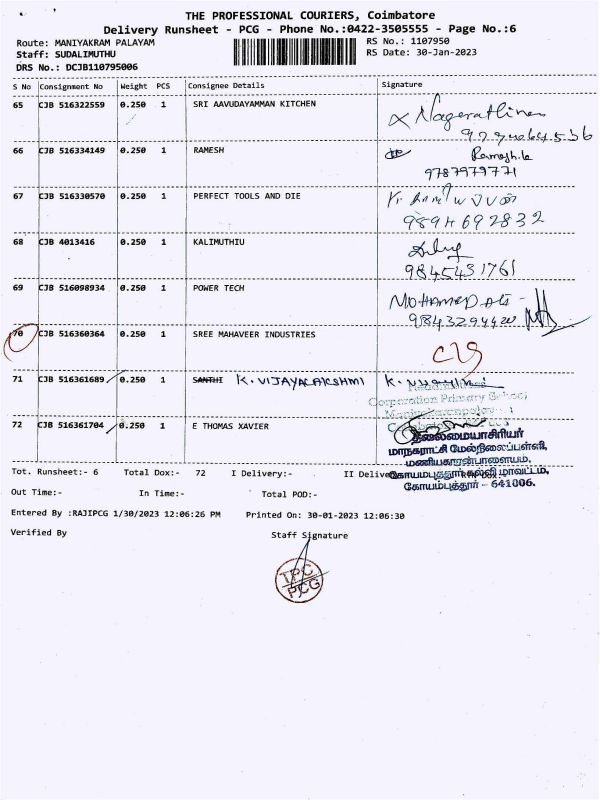 THE PROFESSIONAL COURIERS, Coimbatore
Delivery Runsheet - PCG - Phone No.:0422-3505555 - Page No.:6
Route: MANIYAKRAM PALAYAM
RS No.: 1107950
Staff: SUDALIMUTHU
RS Date: 30-Jan-2023
DRS No.: DCJB110795006
S No Consignment No Weight PCS Consignee Details Signature
65 CJB 516322559 0.250 1 SRI AAVUDAYAMMAN KITCHEN
66 CJB 516334149 0.250 1 RAMESH Ramesh.k
9787979771
67 CJB 516330570 0.250 1 PERFECT TOOLS AND DIE
9894692832
68 CJB 4013416 0.250 1 KALIMUTHIU
9845431761
69 CJB 516098934 0.250 1 POWER TECH MOHAMED Ali
70 CJB 516360364 0.250 1 SREE MAHAVEER INDUSTRIES
71 CJB 516361689 0.250 1 SANTHI K. VIJAYALAKSHMI
Corporation Primary School
72 CJB 516361704 0.250 1 E THOMAS XAVIER
தலைமையாசிரியர்
மாநகராட்சி மேல்நிலைப்பள்ளி,
மணியகாரன்பாளையம்,
Tot. Runsheet:- 6 Total Dox:- 72 I Delivery:- II Delivery
கோயம்புத்தூர் கல்வி மாவட்டம்,
கோயம்புத்தூர் - 641006.
Out Time:- In Time:- Total POD:-
Entered By :RAJIPCG 1/30/2023 12:06:26 PM Printed On: 30-01-2023 12:06:30
Verified By Staff Signature
TPC
PCG